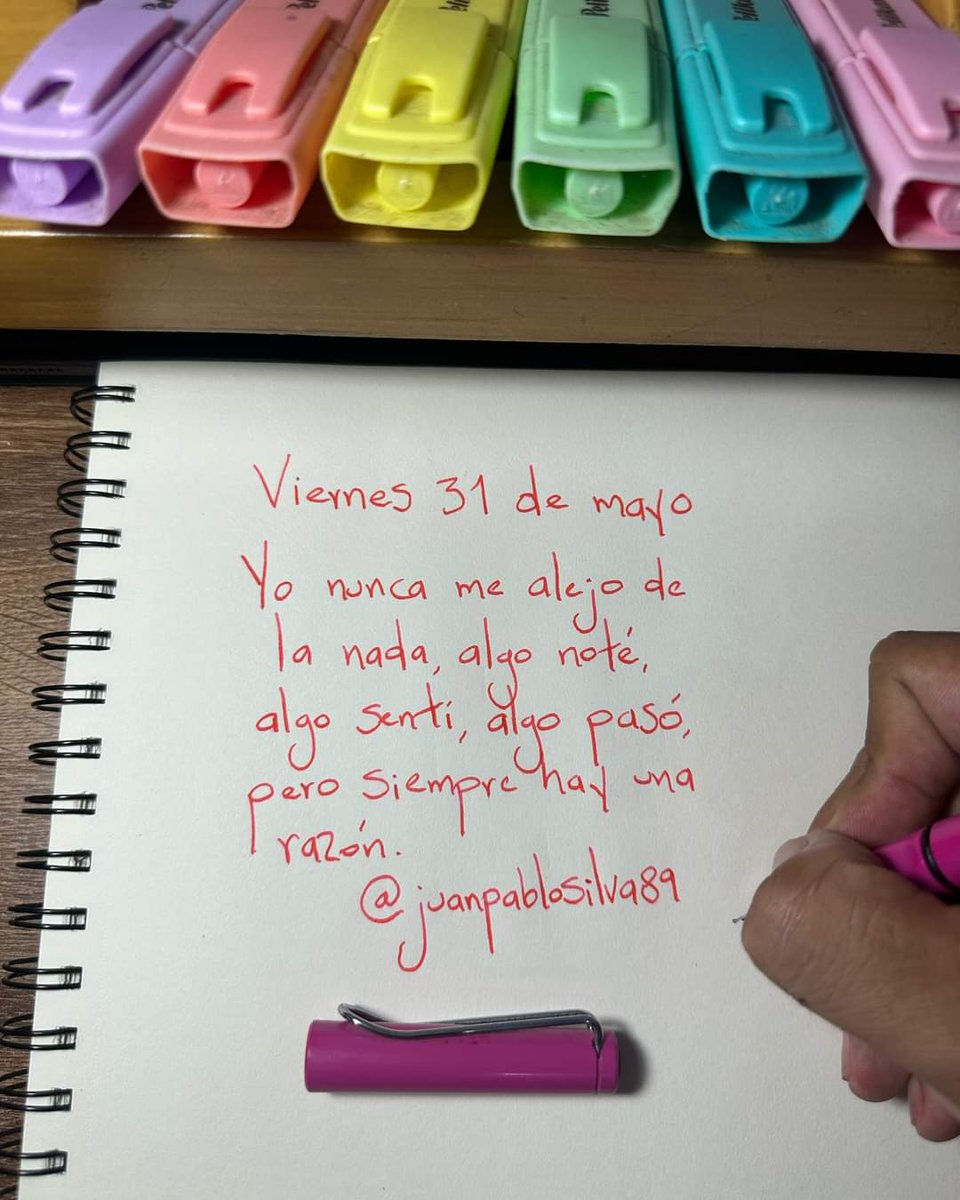 Viernes 31 de mayo
Yo nunca me alejo de
la nada, algo noté,
algo sentí, algo pasó,
pero siempre hay una
razón.
@juanpablosilva89